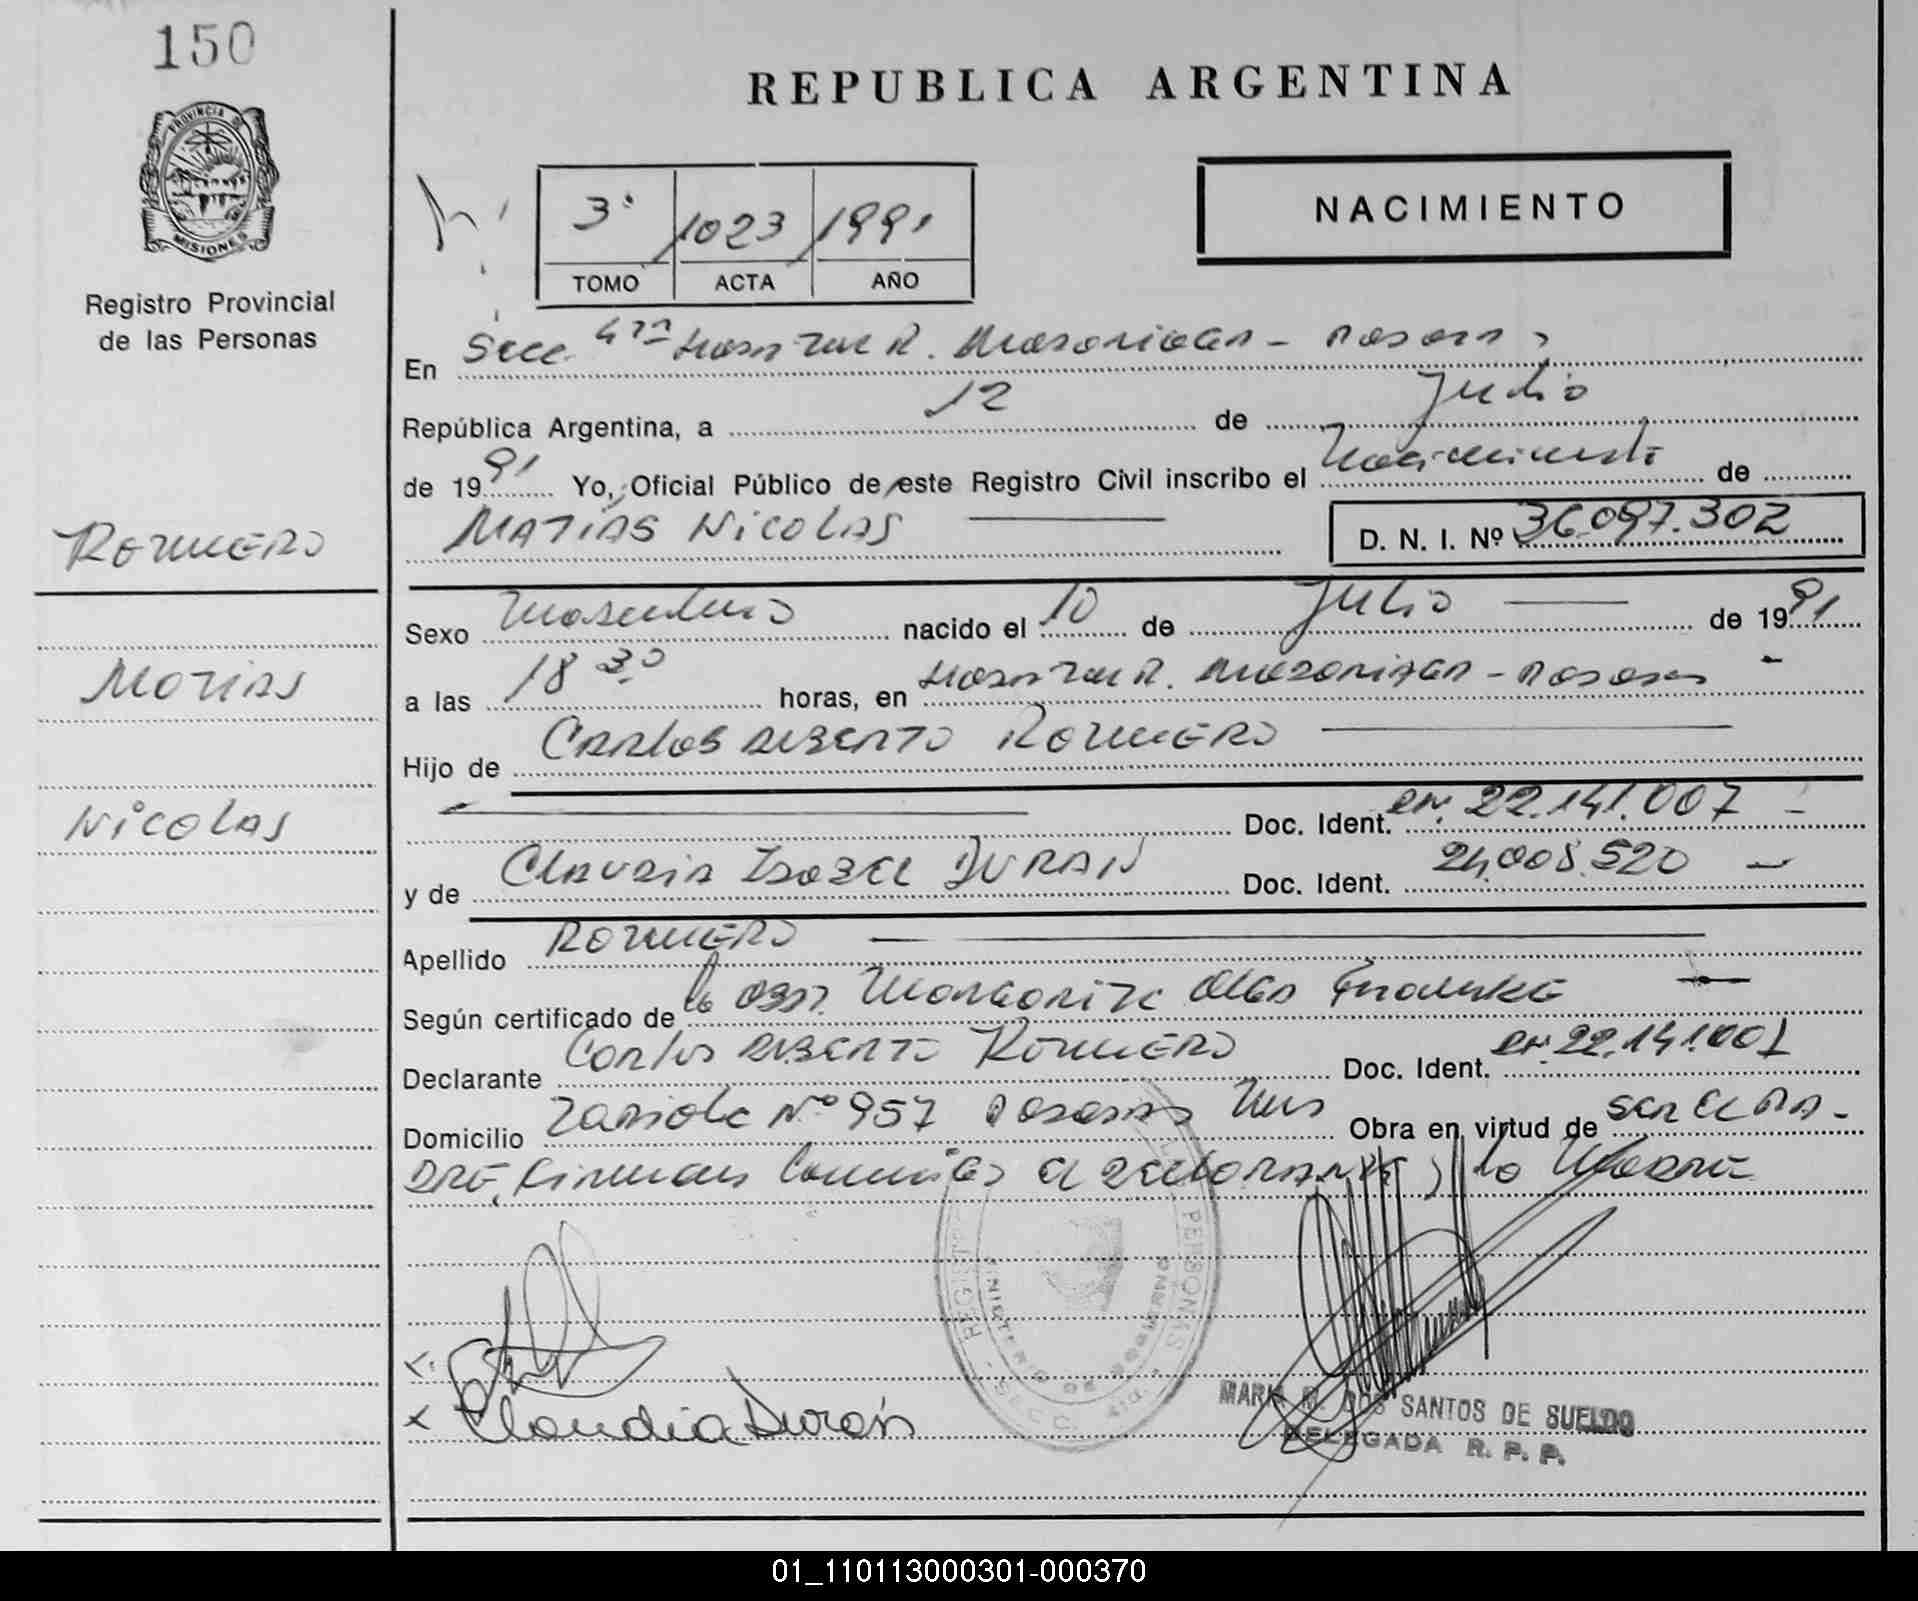 150
PROVINCIA DE
MISIONES
Registro Provincial
de las Personas
ROMERO
MATIAS
NICOLAS
REPUBLICA ARGENTINA
3° 1023 1991
TOMO ACTA AÑO
NACIMIENTO
En Secc. 4ta Hospital R. Madariaga - Posadas,
República Argentina, a 12 de Julio
de 1991 Yo, Oficial Público de este Registro Civil inscribo el Nacimiento de
MATIAS NICOLAS D. N. I. Nº 36.097.302
Sexo Masculino nacido el 10 de Julio de 1991
a las 18 30 horas, en Hospital R. Madariaga - Posadas -
Hijo de CARLOS ALBERTO ROMERO
Doc. Ident. 22.141.007 -
y de CLAUDIA ISABEL DURAN Doc. Ident. 24.008.520 -
Apellido ROMERO
Según certificado de la Obst. Margarita Olga
Declarante Carlos ALBERTO ROMERO Doc. Ident. 22.141.007
Domicilio Nº 957 Posadas Mns Obra en virtud de SER EL PA-
DRE, Firman el DECLARANTE y la MADRE
REGISTRO PERSONAS
MINISTERIO DE GOBIERNO
SECC. 4ta.
x Claudia Durán
MARIA M. DOS SANTOS DE SUELDO
DELEGADA R. P. P.
01_110113000301-000370